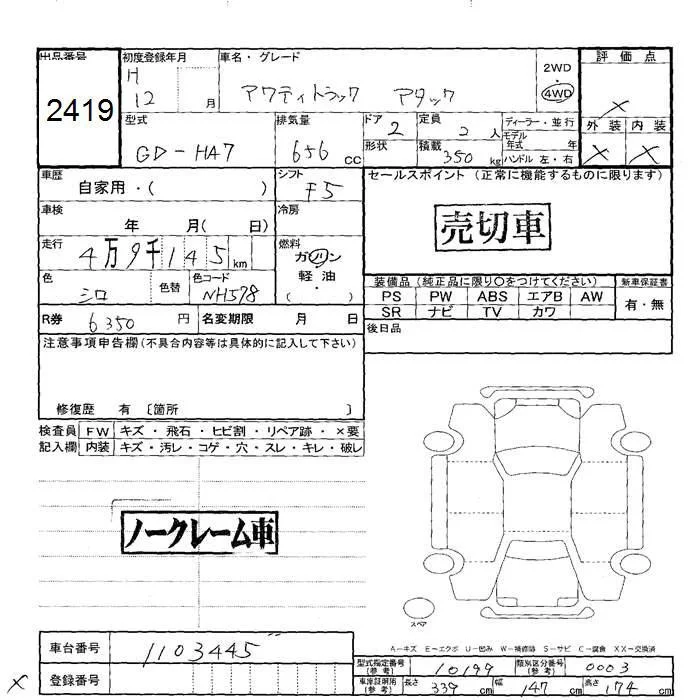 出品番号 初度登録年月 車名・グレード 評価点
2419
H 12 月 アクティトラック アタック 2WD 4WD
×
型式 排気量 ドア 2 定員 2 人 ディーラー・並行 外装 内装
GD-HA7 656 cc 形状 積載 350 kg モデル年式 年 × ×
ハンドル 左・右
車歴 自家用・( ) シフト F5 セールスポイント (正常に機能するものに限ります)
車検 年 月( 日) 冷房 売切車
走行 4万9千145 km 燃料 ガソリン 軽油 ・ ( )
色 シロ 色替 色コード NH578
装備品 (純正品に限り○をつけてください) 新車保証書
PS PW ABS エアB AW 有・無
SR ナビ TV カワ
R券 6350 円 名変期限 月 日 後日品
注意事項申告欄(不具合内容等は具体的に記入して下さい)
修復歴 有 〔箇所 〕
検査員 FW キズ・飛石・ヒビ割・リペア跡・×要
記入欄 内装 キズ・汚レ・コゲ・穴・スレ・キレ・破レ
ノークレーム車
スペア
A－キズ E－エクボ U－凹み W－補修跡 S－サビ C－腐食 XX－交換済
車台番号 1103445
型式指定番号(参考) 10199 類別区分番号(参考) 0003
× 登録番号
車庫証明用(参考) 長さ 339 cm 幅 147 cm 高さ 174 cm